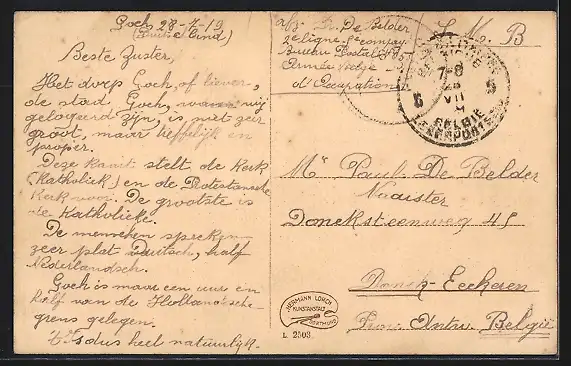 Goch 28-7-19
(Duitschland)
Beste Zuster,
Het dorp Goch, of liever,
de stad Goch, waar wij
gelogeerd zijn, is niet zeer
groot, maar heffelijk en
proper.
Deze kaart stelt de Kerk
(Katholiek) en de Protestansche
Kerk voor. De grootste is
de Katholieke.
De menschen spreken
zeer plat Duitsch, half
Nederlandsch.
Goch is maar een uur en
half van de Hollandsche
grens gelegen.
't Is dus heel natuurlijk.
De Belder
2e ligne 5e comp
Bureau Postal
Armée belge
d'Occupation
S. M. B
7-8
VII
BELGIE
5 5
Mr Paul De Belder
Naaister
Donksteenweg 45
Donck-Eeckeren
Prov. Antw. België
HERMANN LORCH
KUNSTANSTALT
DORTMUND
L. 2503